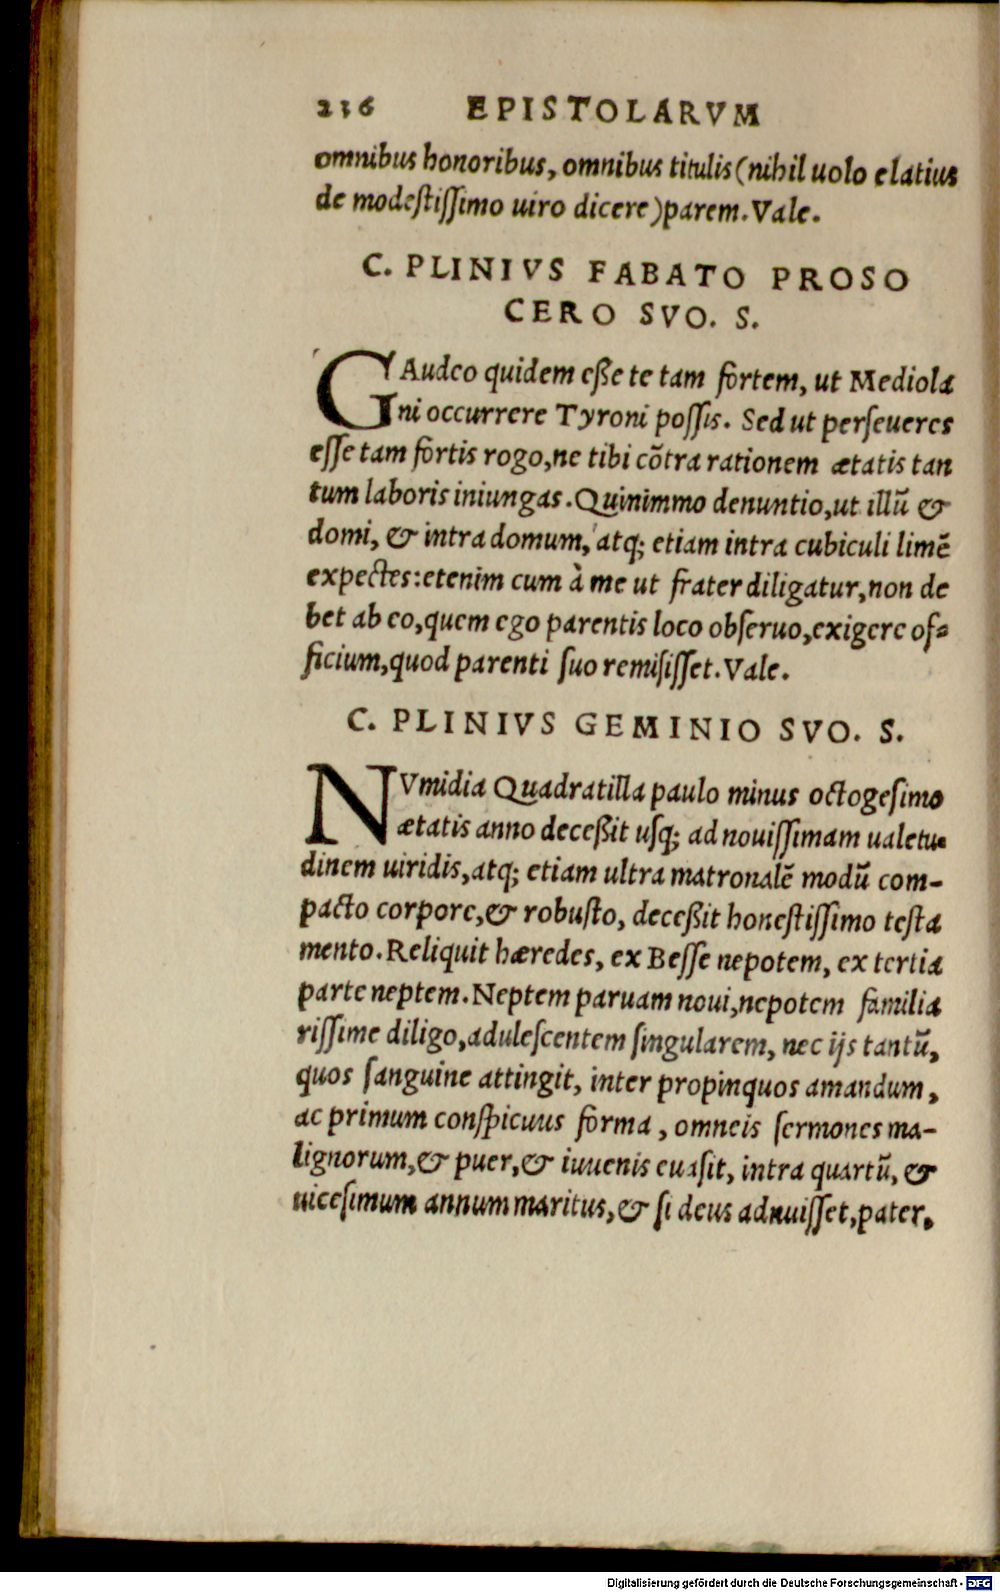 236 EPISTOLARVM
omnibus honoribus, omnibus titulis (nihil uolo elatius
de modeſtiſſimo uiro dicere) parem. Vale.
C. PLINIVS FABATO PROSO
CERO SVO. S.
GAudeo quidem eße te tam fortem, ut Mediola
ni occurrere Tyroni poſſis. Sed ut perſeueres
eſſe tam fortis rogo, ne tibi cõtra rationem ætatis tan
tum laboris iniungas. Quinimmo denuntio, ut illũ &
domi, & intra domum, atq; etiam intra cubiculi limẽ
expectes: etenim cum à me ut frater diligatur, non de
bet ab eo, quem ego parentis loco obſeruo, exigere of-
ficium, quod parenti ſuo remiſiſſet. Vale.
C. PLINIVS GEMINIO SVO. S.
NVmidia Quadratilla paulo minus octogeſimo
ætatis anno deceßit uſq; ad nouiſſimam ualetu-
dinem uiridis, atq; etiam ultra matronalẽ modũ com-
pacto corpore, & robuſto, deceßit honeſtiſſimo teſta
mento. Reliquit hæredes, ex Beſſe nepotem, ex tertia
parte neptem. Neptem paruam noui, nepotem familia
riſſime diligo, aduleſcentem ſingularem, nec ijs tantũ,
quos ſanguine attingit, inter propinquos amandum,
ac primum conſpicuus forma, omneis ſermones ma-
lignorum, & puer, & iuuenis euaſit, intra quartũ, &
uiceſimum annum maritus, & ſi deus adnuiſſet, pater.
Digitalisierung gefördert durch die Deutsche Forschungsgemeinschaft - DFG